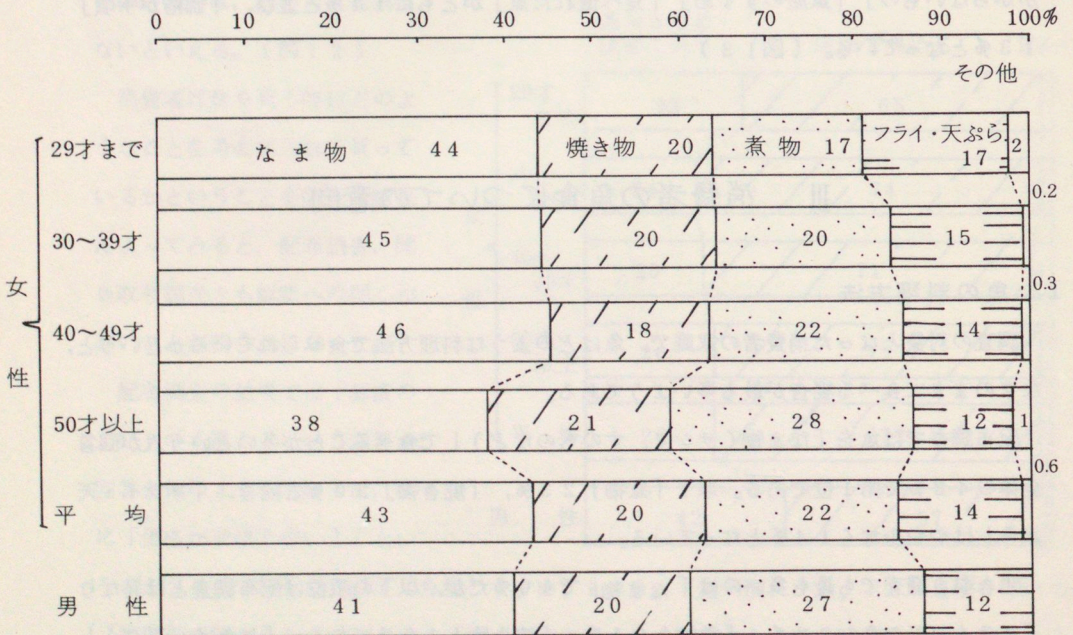 0 10 20 30 40 50 60 70 80 90 100%
その他
29才まで なま物 44 焼き物 20 煮物 17 フライ・天ぷら 17 2
0.2
30～39才 45 20 20 15
0.3
女
40～49才 46 18 22 14
性
50才以上 38 21 28 12 1
0.6
平均 43 20 22 14
男性 41 20 27 12